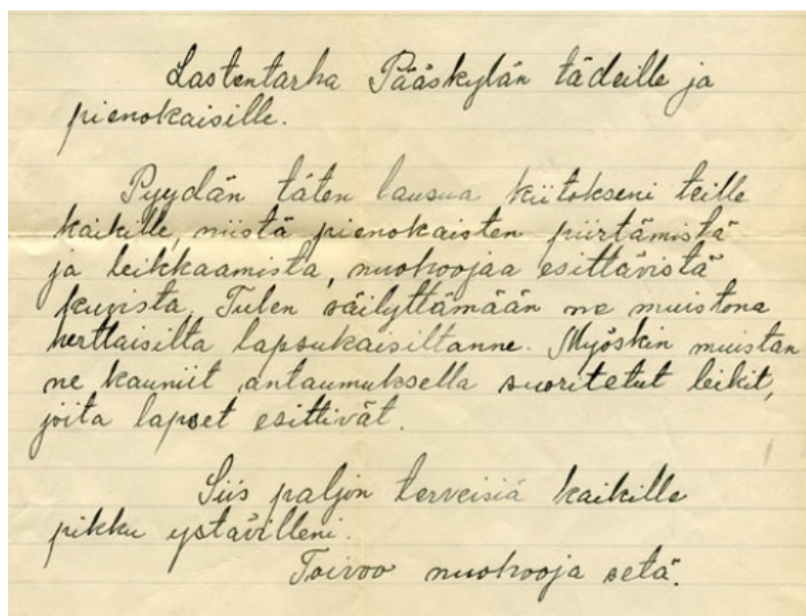 Lastentarha Pääskylän tädeille ja
pienokaisille.
Pyydän täten lausua kiitokseni teille
kaikille, niistä pienokaisten piirtämistä
ja leikkaamista, nuohoojaa esittävistä
kuvista. Tulen säilyttämään ne muistona
herttaisilta lapsukaisiltanne. Myöskin muistan
ne kauniit antaumuksella suoritetut leikit,
joita lapset esittivät.
Siis paljon terveisiä kaikille
pikku ystävilleni.
Toivoo nuohooja setä.